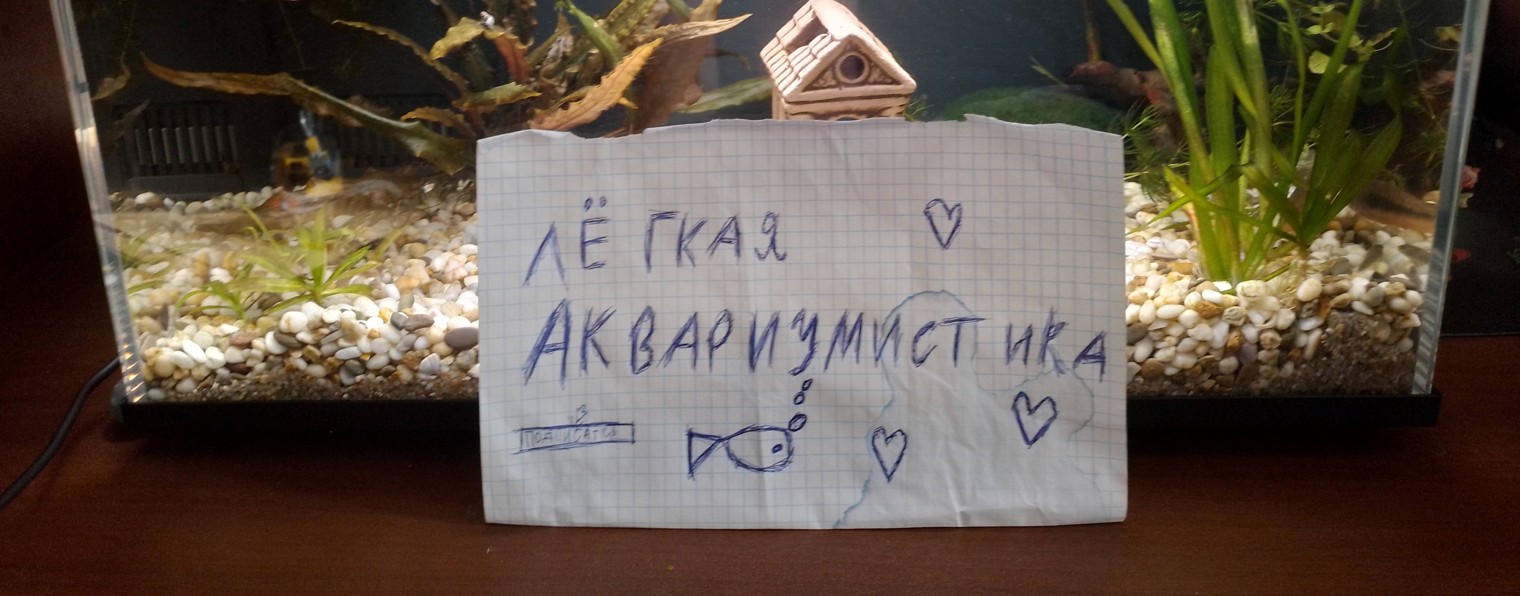 ЛЁГКАЯ
АКВАРИУМИСТИКА
ПОДПИСАТСЯ